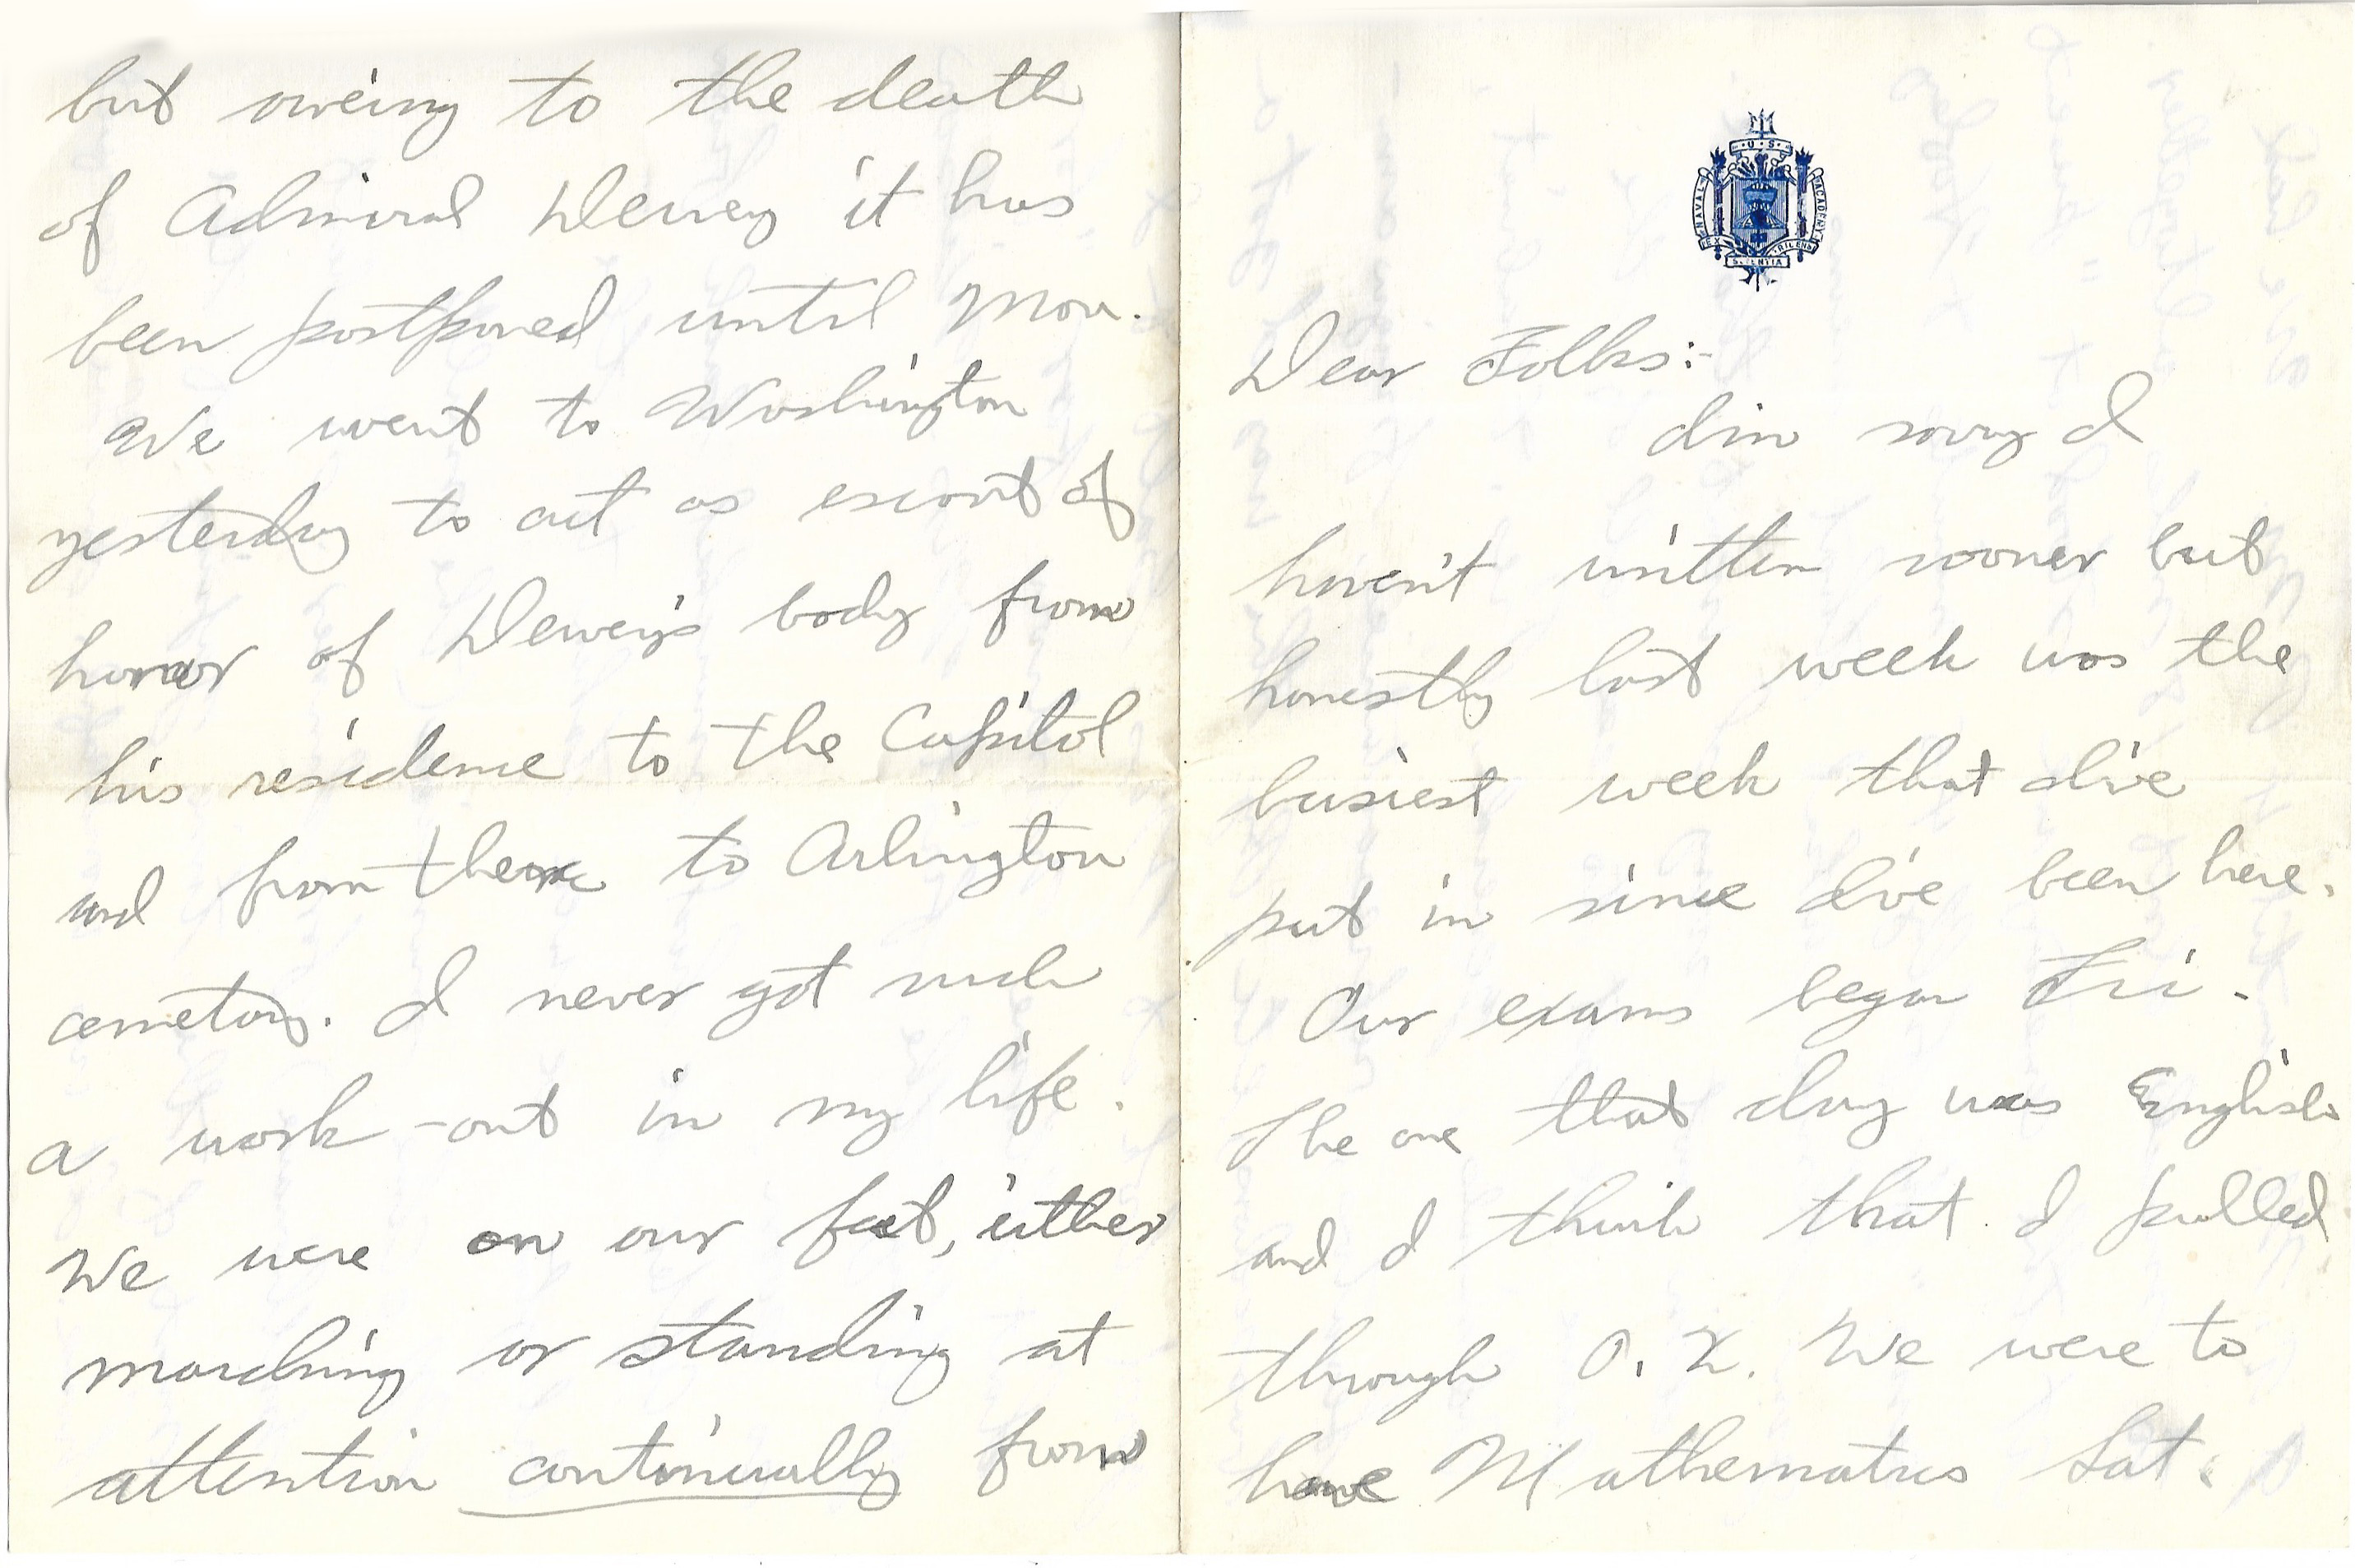 U.S.
NAVAL ACADEMY
EX SCIENTIA TRIDENS
Dear Folks:-
I'm sorry I
haven't written sooner but
honestly last week was the
busiest week that I've
put in since I've been here.
Our exams began Fri.
The one that day was English
and I think that I pulled
through O.K. We were to
have Mathematics Sat.
but oweing to the death
of Admiral Dewey it has
been postponed until Mon.
We went to Washington
yesterday to act as escort of
honor of Dewey's body from
his residence to the Capitol
and from there to Arlington
cemetary. I never got such
a work-out in my life.
We were on our feet, either
marching or standing at
attention continually from